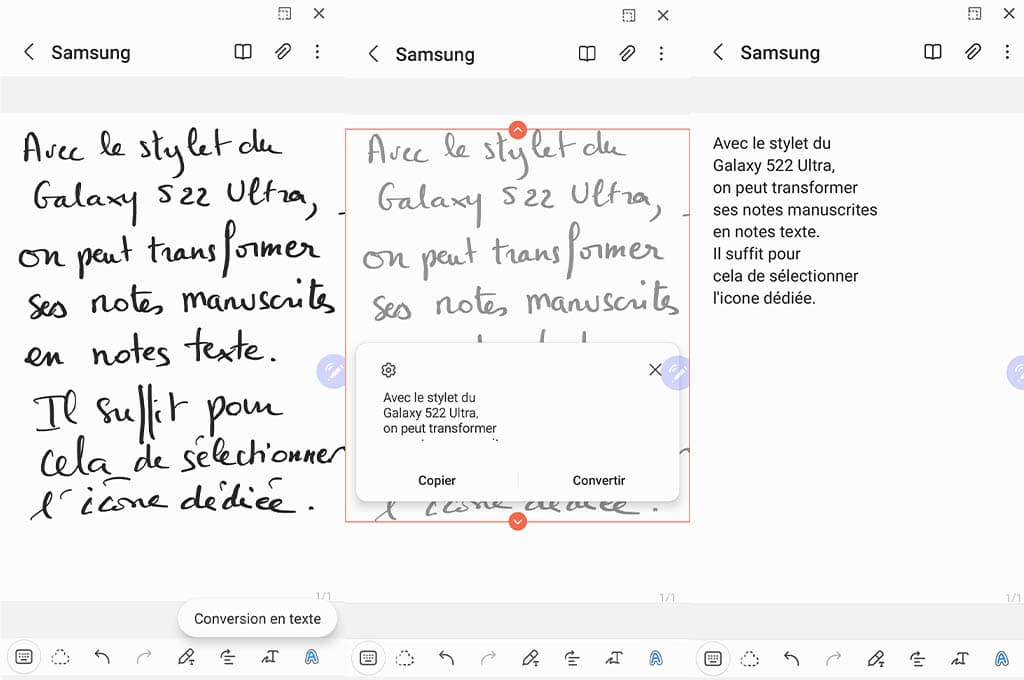 Samsung
Avec le stylet du
Galaxy S22 Ultra,
on peut transformer
ses notes manuscrites
en notes texte.
Il suffit pour
cela de sélectionner
l'icône dédiée.
1/1
Conversion en texte
Samsung
Avec le stylet du
Galaxy S22 Ultra,
on peut transformer
ses notes manuscrites
Avec le stylet du
Galaxy 522 Ultra,
on peut transformer
Copier Convertir
l'icône dédiée.
1/1
Samsung
Avec le stylet du
Galaxy 522 Ultra,
on peut transformer
ses notes manuscrites
en notes texte.
Il suffit pour
cela de sélectionner
l'icone dédiée.
1/1